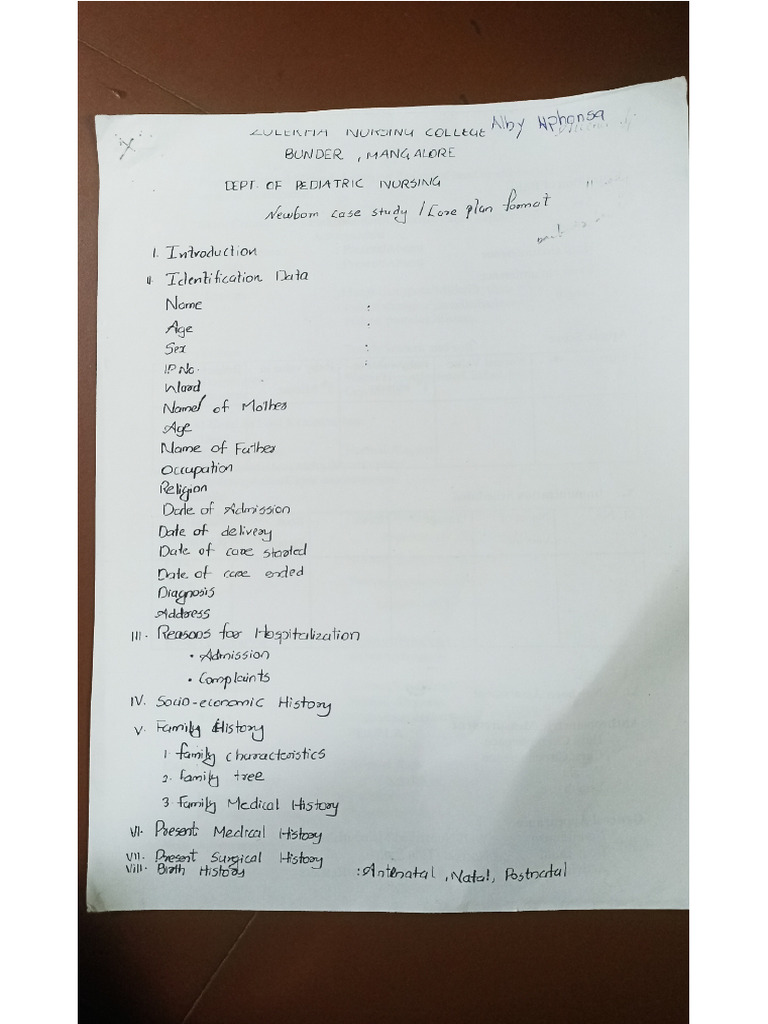 ZULEKHA NURSING COLLEGE Alby Alphonsa
BUNDER , MANGALORE
DEPT. OF PEDIATRIC NURSING
Newborn case study / Care plan format
I. Introduction
II. Identification Data
Name :
Age :
Sex :
I.P No. :
Ward
Name of Mother
Age
Name of Father
Occupation
Religion
Date of Admission
Date of delivery
Date of care started
Date of care ended
Diagnosis
Address
III. Reasons for Hospitalization
• Admission
• Complaints
IV. Socio-economic History
V. Family History
1. family characteristics
2. family tree
3 Family Medical History
VI. Present Medical History
VII. Present Surgical History
VIII. Birth History : Antenatal , Natal, Postnatal